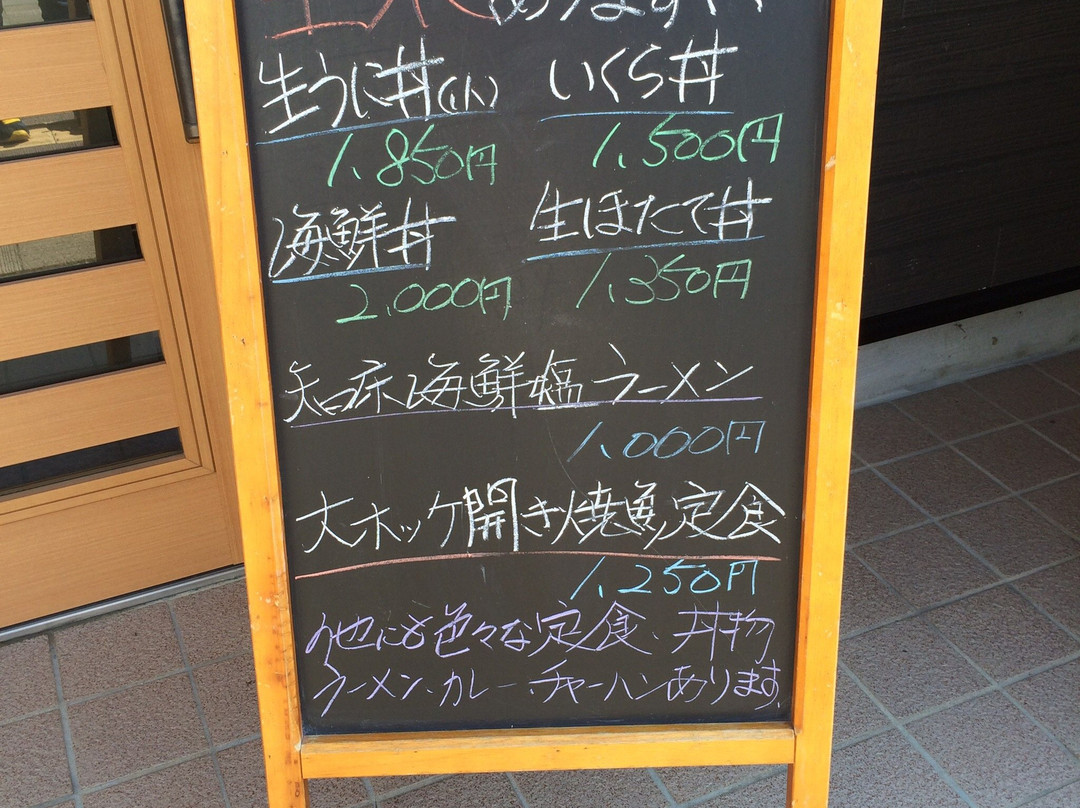 あります!!
生うに丼(小) いくら丼
1,850円 1,500円
海鮮丼 生ほたて丼
2,000円 1,350円
知床海鮮塩ラーメン
1,000円
大ホッケ開き焼魚定食
1,250円
他にも色々な定食、丼物
ラーメン、カレー、チャーハンあります